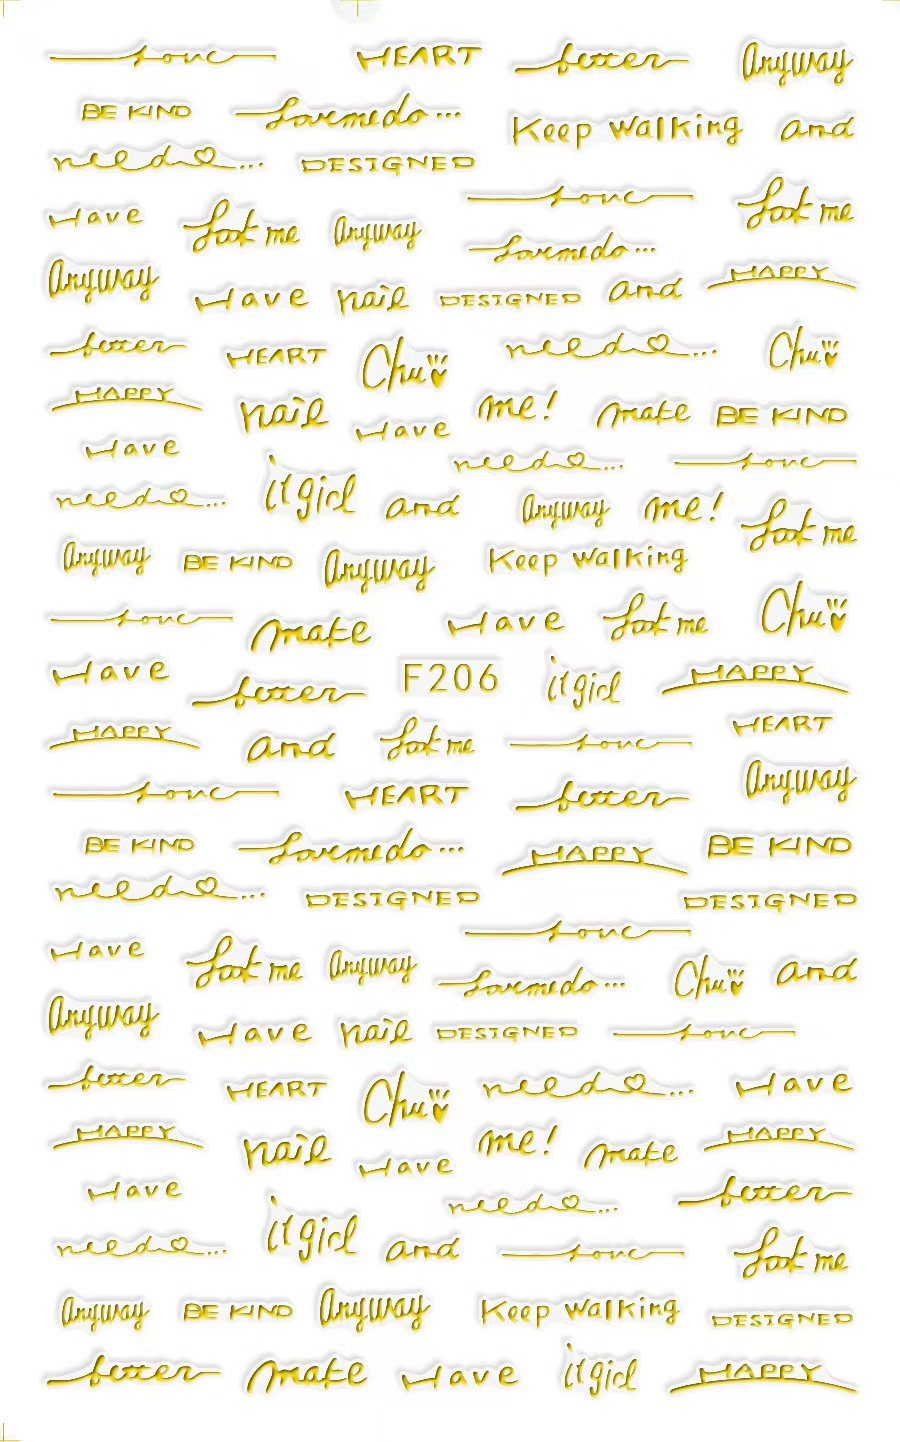 love HEART better Anyway
BE KIND Lovemedo... Keep walking and
need... DESIGNED
love Look me
Have Look me Anyway Lovemedo...
Anyway Have nail DESIGNED and HAPPY
better HEART Chu need... Chu
HAPPY nail Have me! make BE KIND
Have need... love
need... it girl and Anyway me! Look me
Anyway BE KIND Anyway Keep walking
love make Have Look me Chu
Have better F206 it girl HAPPY
HAPPY and Look me love HEART
love HEART better Anyway
BE KIND Lovemedo... HAPPY BE KIND
need... DESIGNED DESIGNED
love
Have Look me Anyway Lovemedo... Chu and
Anyway Have nail DESIGNED love
better HEART Chu need... Have
HAPPY nail Have me! make HAPPY
Have need... better
need... it girl and love Look me
Anyway BE KIND Anyway Keep walking DESIGNED
better make Have it girl HAPPY